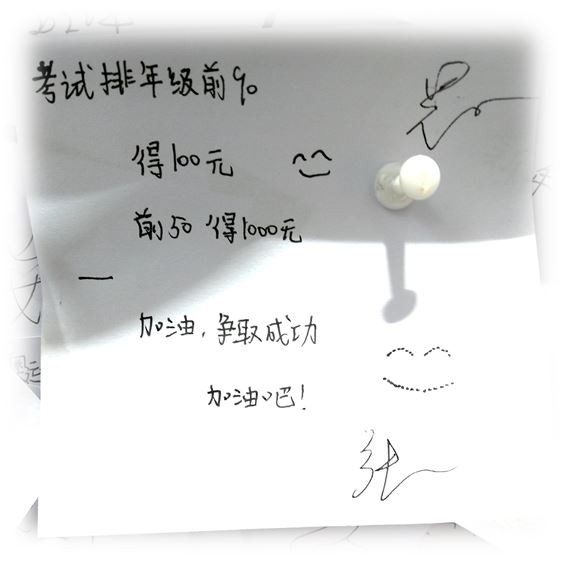 考试排年级前90
得100元
前50 得1000元
加油，争取成功
加油吧！
张